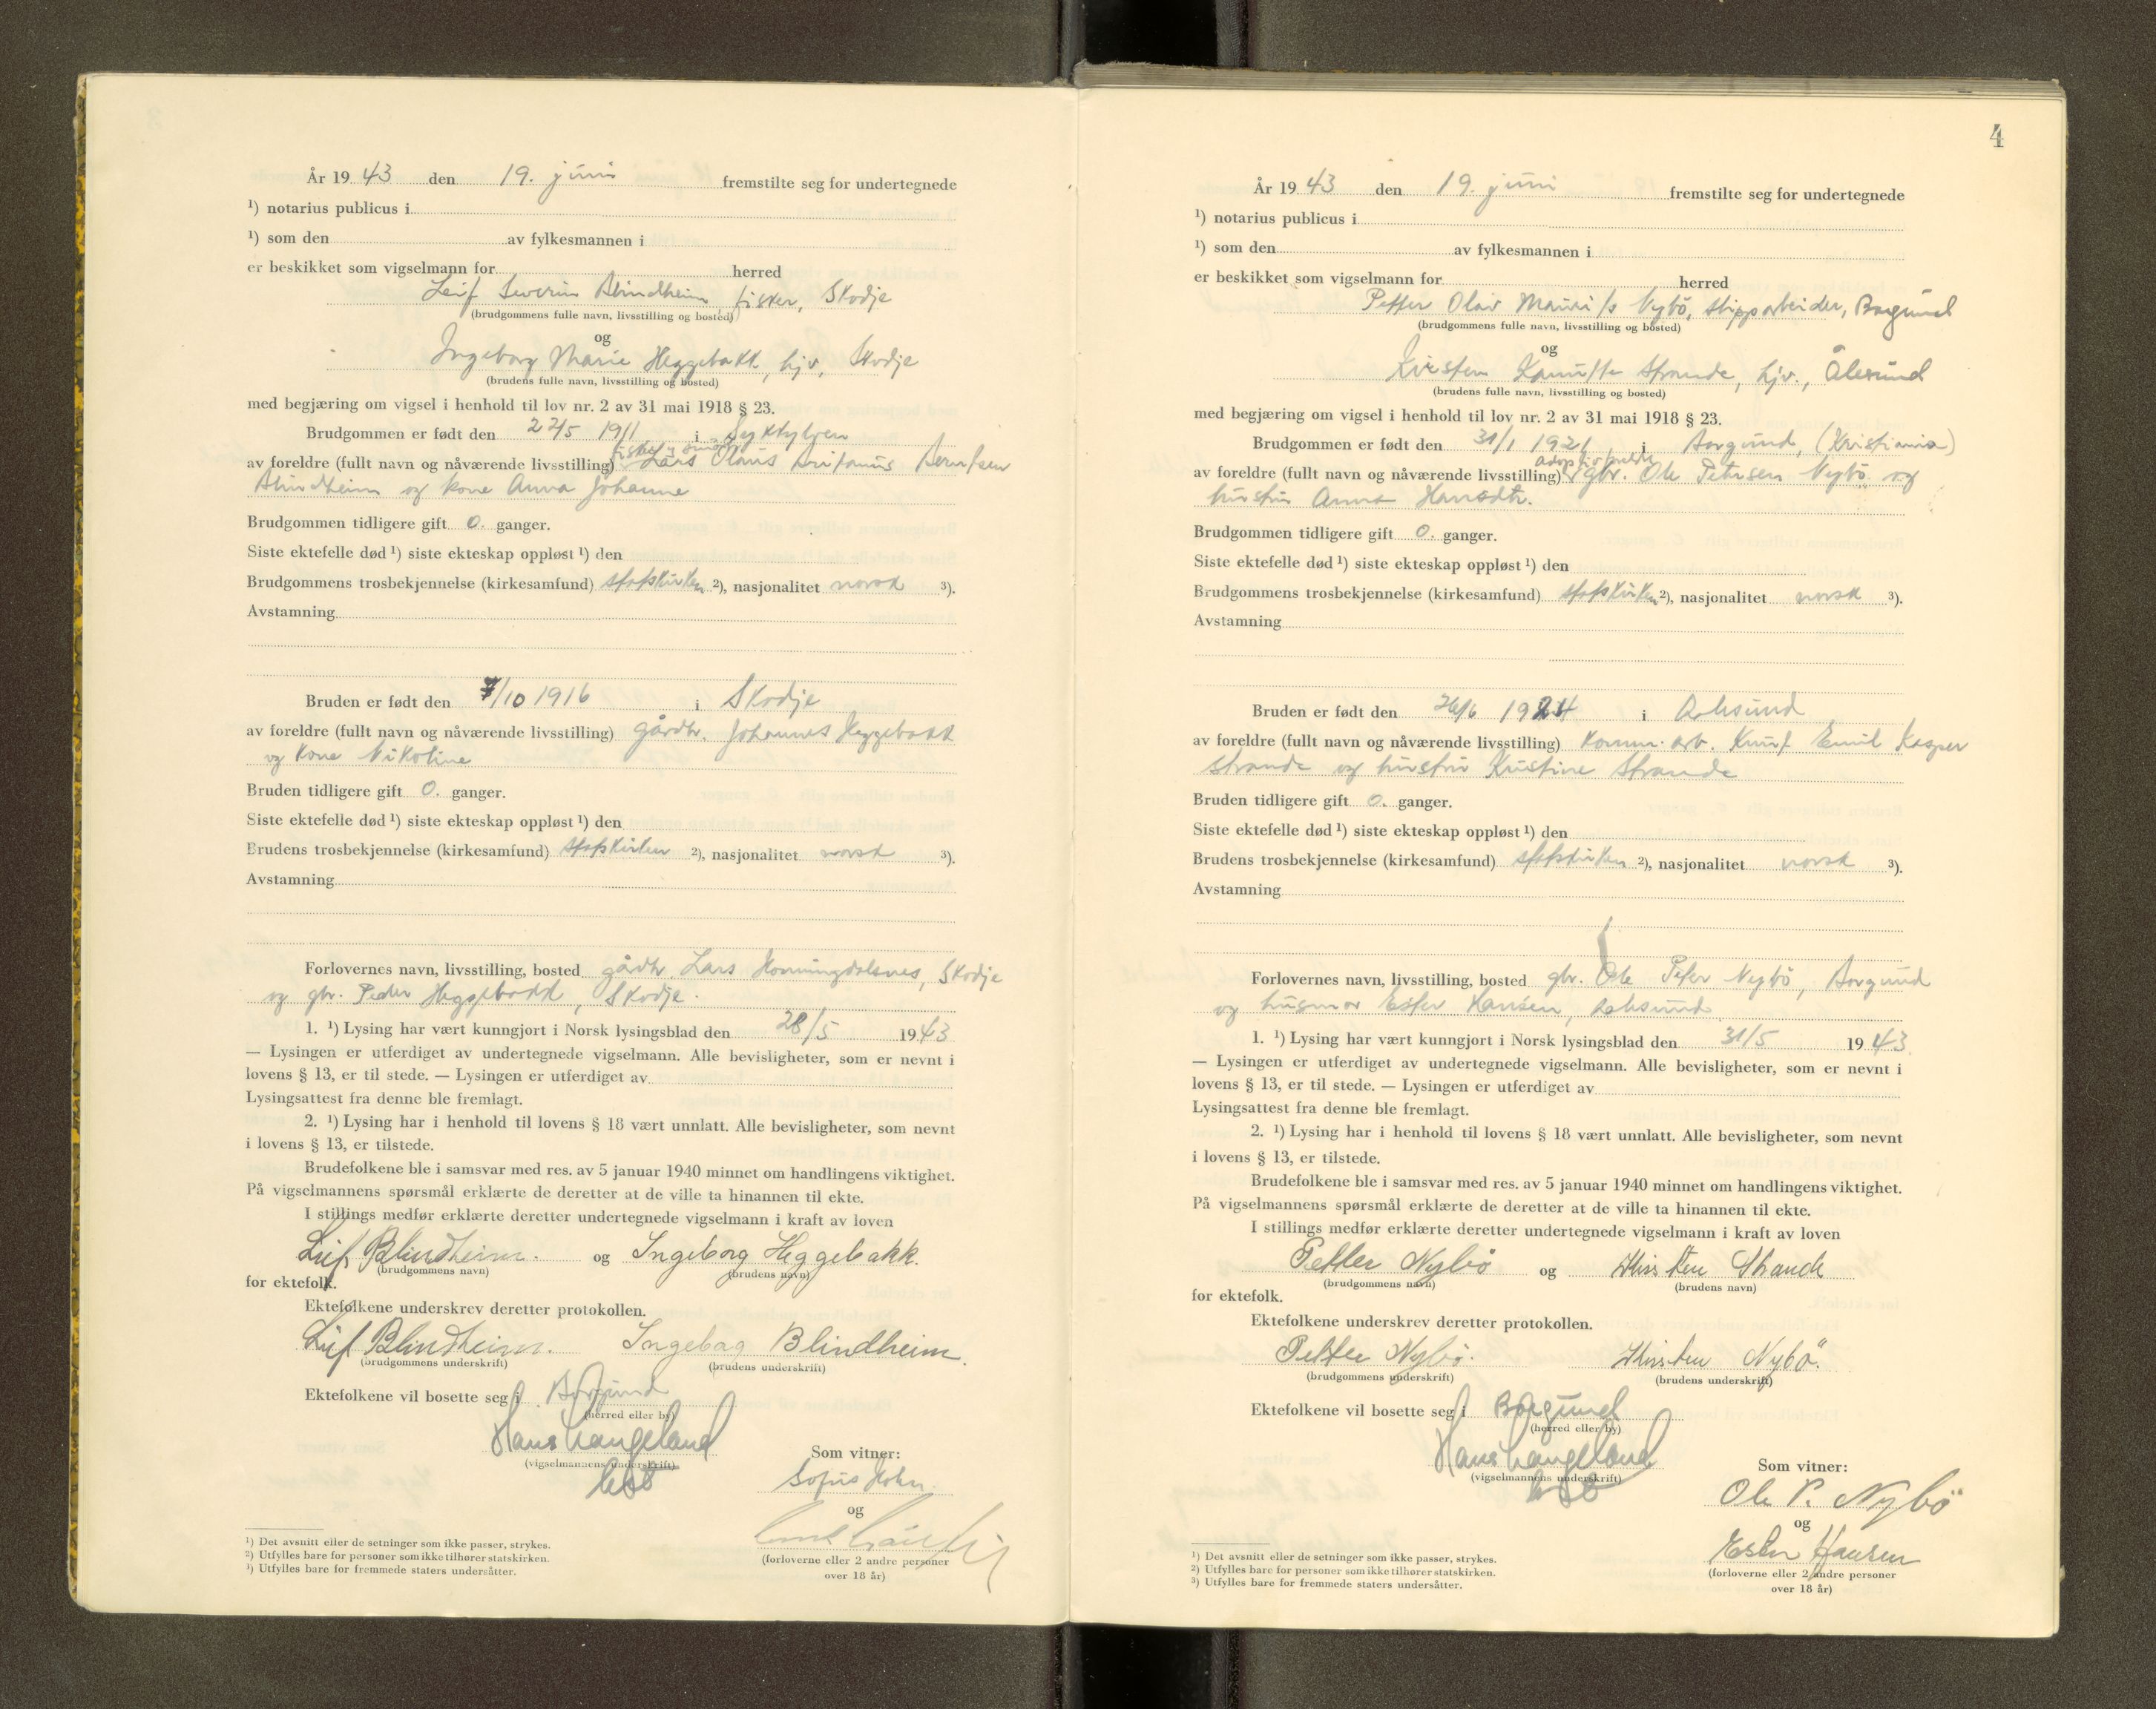 År 19 43 den 19. juni fremstilte seg for undertegnede
¹) notarius publicus i
¹) som den av fylkesmannen i
er beskikket som vigselmann for herred
Leif Severin Blindheim, fisker, Skodje
(brudgommens fulle navn, livsstilling og bosted)
og
Ingeborg Marie Heggebakk, hjv, Skodje
(brudens fulle navn, livsstilling og bosted)
med begjæring om vigsel i henhold til lov nr. 2 av 31 mai 1918 § 23.
Brudgommen er født den 22/5 1911 i Sykkylven
av foreldre (fullt navn og nåværende livsstilling) Lars Olaus Berntsen
Blindheim og kone Anna Johanne
Brudgommen tidligere gift 0. ganger.
Siste ektefelle død ¹) siste ekteskap oppløst ¹) den
Brudgommens trosbekjennelse (kirkesamfund) statskirken ²), nasjonalitet norsk ³).
Avstamning
Bruden er født den 7/10 1916 i Skodje
av foreldre (fullt navn og nåværende livsstilling) gårdbr. Johannes Heggebakk
og kone Nikoline
Bruden tidligere gift 0. ganger.
Siste ektefelle død ¹) siste ekteskap oppløst ¹) den
Brudens trosbekjennelse (kirkesamfund) statskirken ²), nasjonalitet norsk ³).
Avstamning
Forlovernes navn, livsstilling, bosted gårdbr. Lars Honningdalsnes, Skodje
og gbr. Peder Heggebakk, Skodje.
1. ¹) Lysing har vært kunngjort i Norsk lysingsblad den 28/5 19 43
— Lysingen er utferdiget av undertegnede vigselmann. Alle bevisligheter, som er nevnt i
lovens § 13, er til stede. — Lysingen er utferdiget av
Lysingsattest fra denne ble fremlagt.
2. ¹) Lysing har i henhold til lovens § 18 vært unnlatt. Alle bevisligheter, som nevnt
i lovens § 13, er tilstede.
Brudefolkene ble i samsvar med res. av 5 januar 1940 minnet om handlingens viktighet.
På vigselmannens spørsmål erklærte de deretter at de ville ta hinannen til ekte.
I stillings medfør erklærte deretter undertegnede vigselmann i kraft av loven
Leif Blindheim. og Ingeborg Heggebakk.
(brudgommens navn) (brudens navn)
for ektefolk.
Ektefolkene underskrev deretter protokollen.
Leif Blindheim. Ingeborg Blindheim.
(brudgommens underskrift) (brudens underskrift)
Ektefolkene vil bosette seg i Borgund
(herred eller by)
Hans Langeland
(vigselmannens underskrift)
Som vitner:
Sofus
og
(forloverne eller 2 andre personer
over 18 år)
¹) Det avsnitt eller de setninger som ikke passer, strykes.
²) Utfylles bare for personer som ikke tilhører statskirken.
³) Utfylles bare for fremmede staters undersåtter.
4
År 19 43 den 19. juni fremstilte seg for undertegnede
¹) notarius publicus i
¹) som den av fylkesmannen i
er beskikket som vigselmann for herred
Petter Olav Mauritz Nybö, skipsarbeider, Borgund
(brudgommens fulle navn, livsstilling og bosted)
og
Kirsten Strande, hjv., Ålesund
(brudens fulle navn, livsstilling og bosted)
med begjæring om vigsel i henhold til lov nr. 2 av 31 mai 1918 § 23.
Brudgommen er født den 31/1 1921 i Borgund, (Kristiania)
adoptivforeldre
av foreldre (fullt navn og nåværende livsstilling) gbr. Ole Petersen Nybö og
hustru Anna Hansdtr.
Brudgommen tidligere gift 0. ganger.
Siste ektefelle død ¹) siste ekteskap oppløst ¹) den
Brudgommens trosbekjennelse (kirkesamfund) statskirken ²), nasjonalitet norsk ³).
Avstamning
Bruden er født den 26/6 1924 i Aalesund
av foreldre (fullt navn og nåværende livsstilling) komm. arb. Knut Emil Kasper
Strande og hustru Kristine Strande
Bruden tidligere gift 0. ganger.
Siste ektefelle død ¹) siste ekteskap oppløst ¹) den
Brudens trosbekjennelse (kirkesamfund) statskirken ²), nasjonalitet norsk ³).
Avstamning
Forlovernes navn, livsstilling, bosted gbr. Ole Peter Nybö, Borgund
og husmor Ester Hansen, Aalesund
1. ¹) Lysing har vært kunngjort i Norsk lysingsblad den 31/5 19 43
— Lysingen er utferdiget av undertegnede vigselmann. Alle bevisligheter, som er nevnt i
lovens § 13, er til stede. — Lysingen er utferdiget av
Lysingsattest fra denne ble fremlagt.
2. ¹) Lysing har i henhold til lovens § 18 vært unnlatt. Alle bevisligheter, som nevnt
i lovens § 13, er tilstede.
Brudefolkene ble i samsvar med res. av 5 januar 1940 minnet om handlingens viktighet.
På vigselmannens spørsmål erklærte de deretter at de ville ta hinannen til ekte.
I stillings medfør erklærte deretter undertegnede vigselmann i kraft av loven
Petter Nybö og Kirsten Strande
(brudgommens navn) (brudens navn)
for ektefolk.
Ektefolkene underskrev deretter protokollen.
Petter Nybö. Kirsten Nybö.
(brudgommens underskrift) (brudens underskrift)
Ektefolkene vil bosette seg i Borgund
(herred eller by)
Hans Langeland
(vigselmannens underskrift)
Som vitner:
Ole P. Nybö
og
Ester Hansen
(forloverne eller 2 andre personer
over 18 år)
¹) Det avsnitt eller de setninger som ikke passer, strykes.
²) Utfylles bare for personer som ikke tilhører statskirken.
³) Utfylles bare for fremmede staters undersåtter.